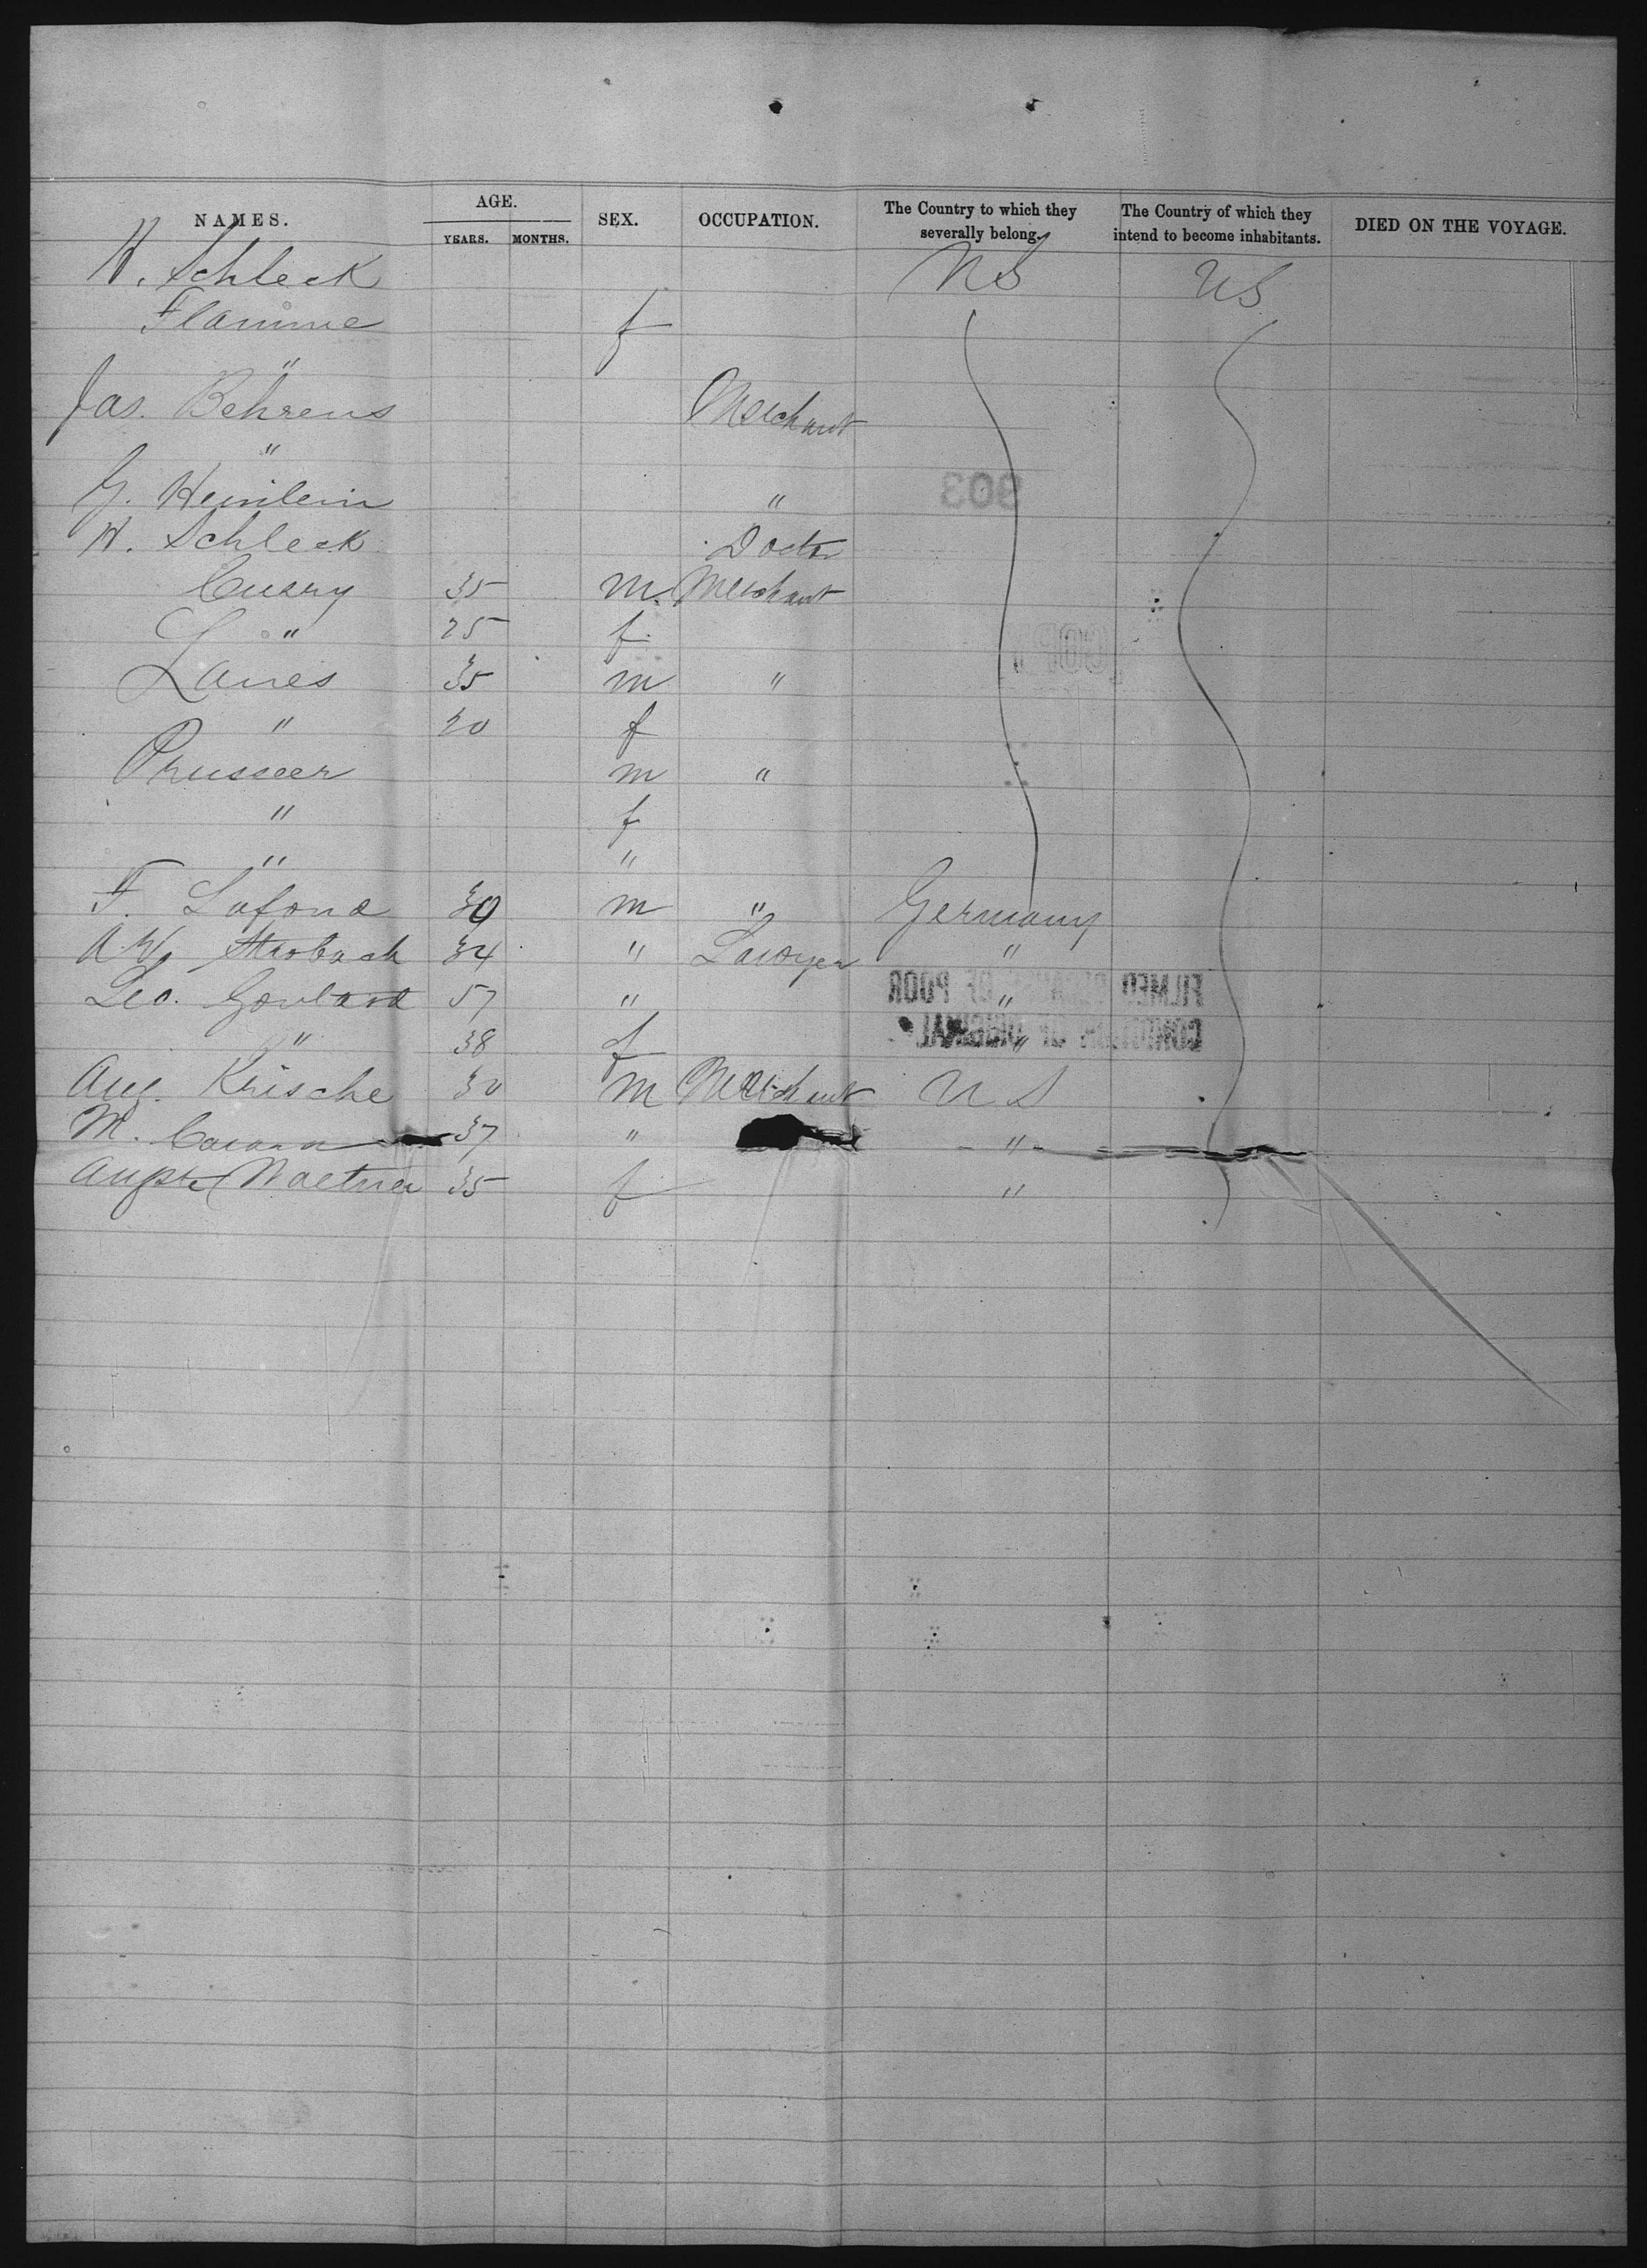 NAMES. AGE. SEX. OCCUPATION. The Country to which they severally belong. The Country of which they intend to become inhabitants. DIED ON THE VOYAGE.
YEARS. MONTHS.
W. Schleck US US
Flamme f
"
Jas. Behrens Merchant
"
G. Heinlein "
W. Schleck Doctor
Cusry 35 m. Merchant
" 25 f.
Lanes 35 m "
" 20 f
Prusseer m "
" f
" "
F. Lafond 30 m " Germany
A W. Strobach 34 " Lawyer "
Leo. Goulard 57 " "
" 38 f "
Aug. Krische 30 m Merchant U S
M. 37 " "
35 f "
303
COPY
FILMED BECAUSE OF POOR
CONDITION OF ORIGINAL